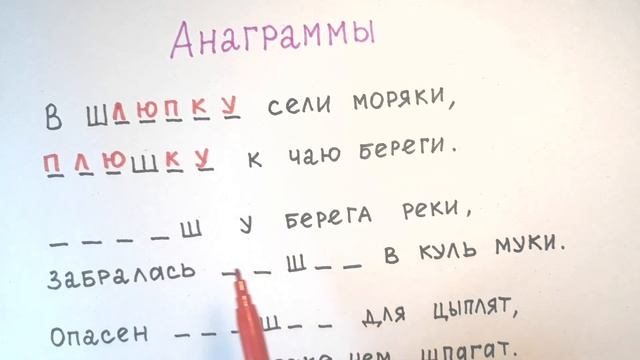 Анаграммы
В шлюпку сели моряки,
плюшку к чаю береги.
_ _ _ _ ш у берега реки,
Забралась _ _ ш _ _ в куль муки.
Опасен _ _ _ ш _ _ для цыплят,
чем шпагат.